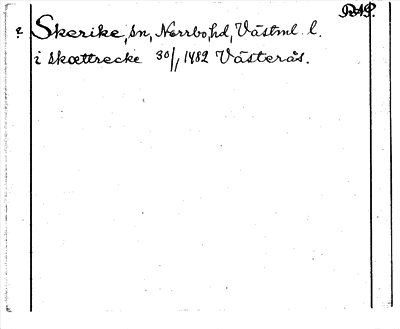 RAP.
? Skerike, sn, Norrbo hd, Västml. l.
i skættrecke 30/1 1482 Västerås.